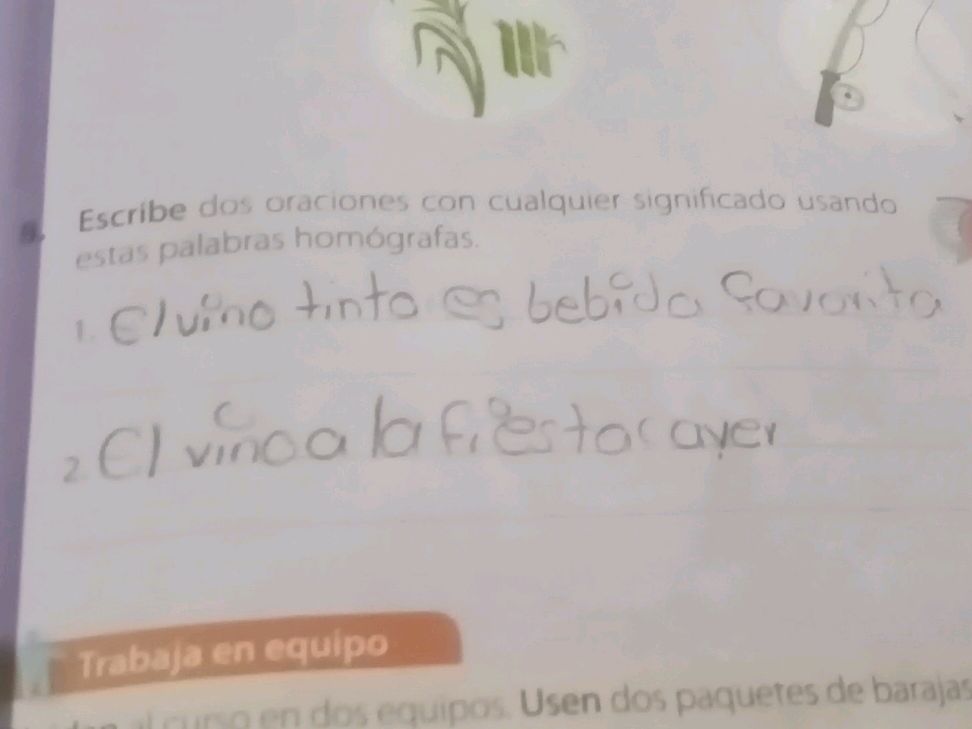 Escribe dos oraciones con cualquier significado usando
estas palabras homógrafas.
1. El vino tinto es bebida favorita
2. El vino a la fiesta ayer
Trabaja en equipo
al curso en dos equipos. Usen dos paquetes de barajas